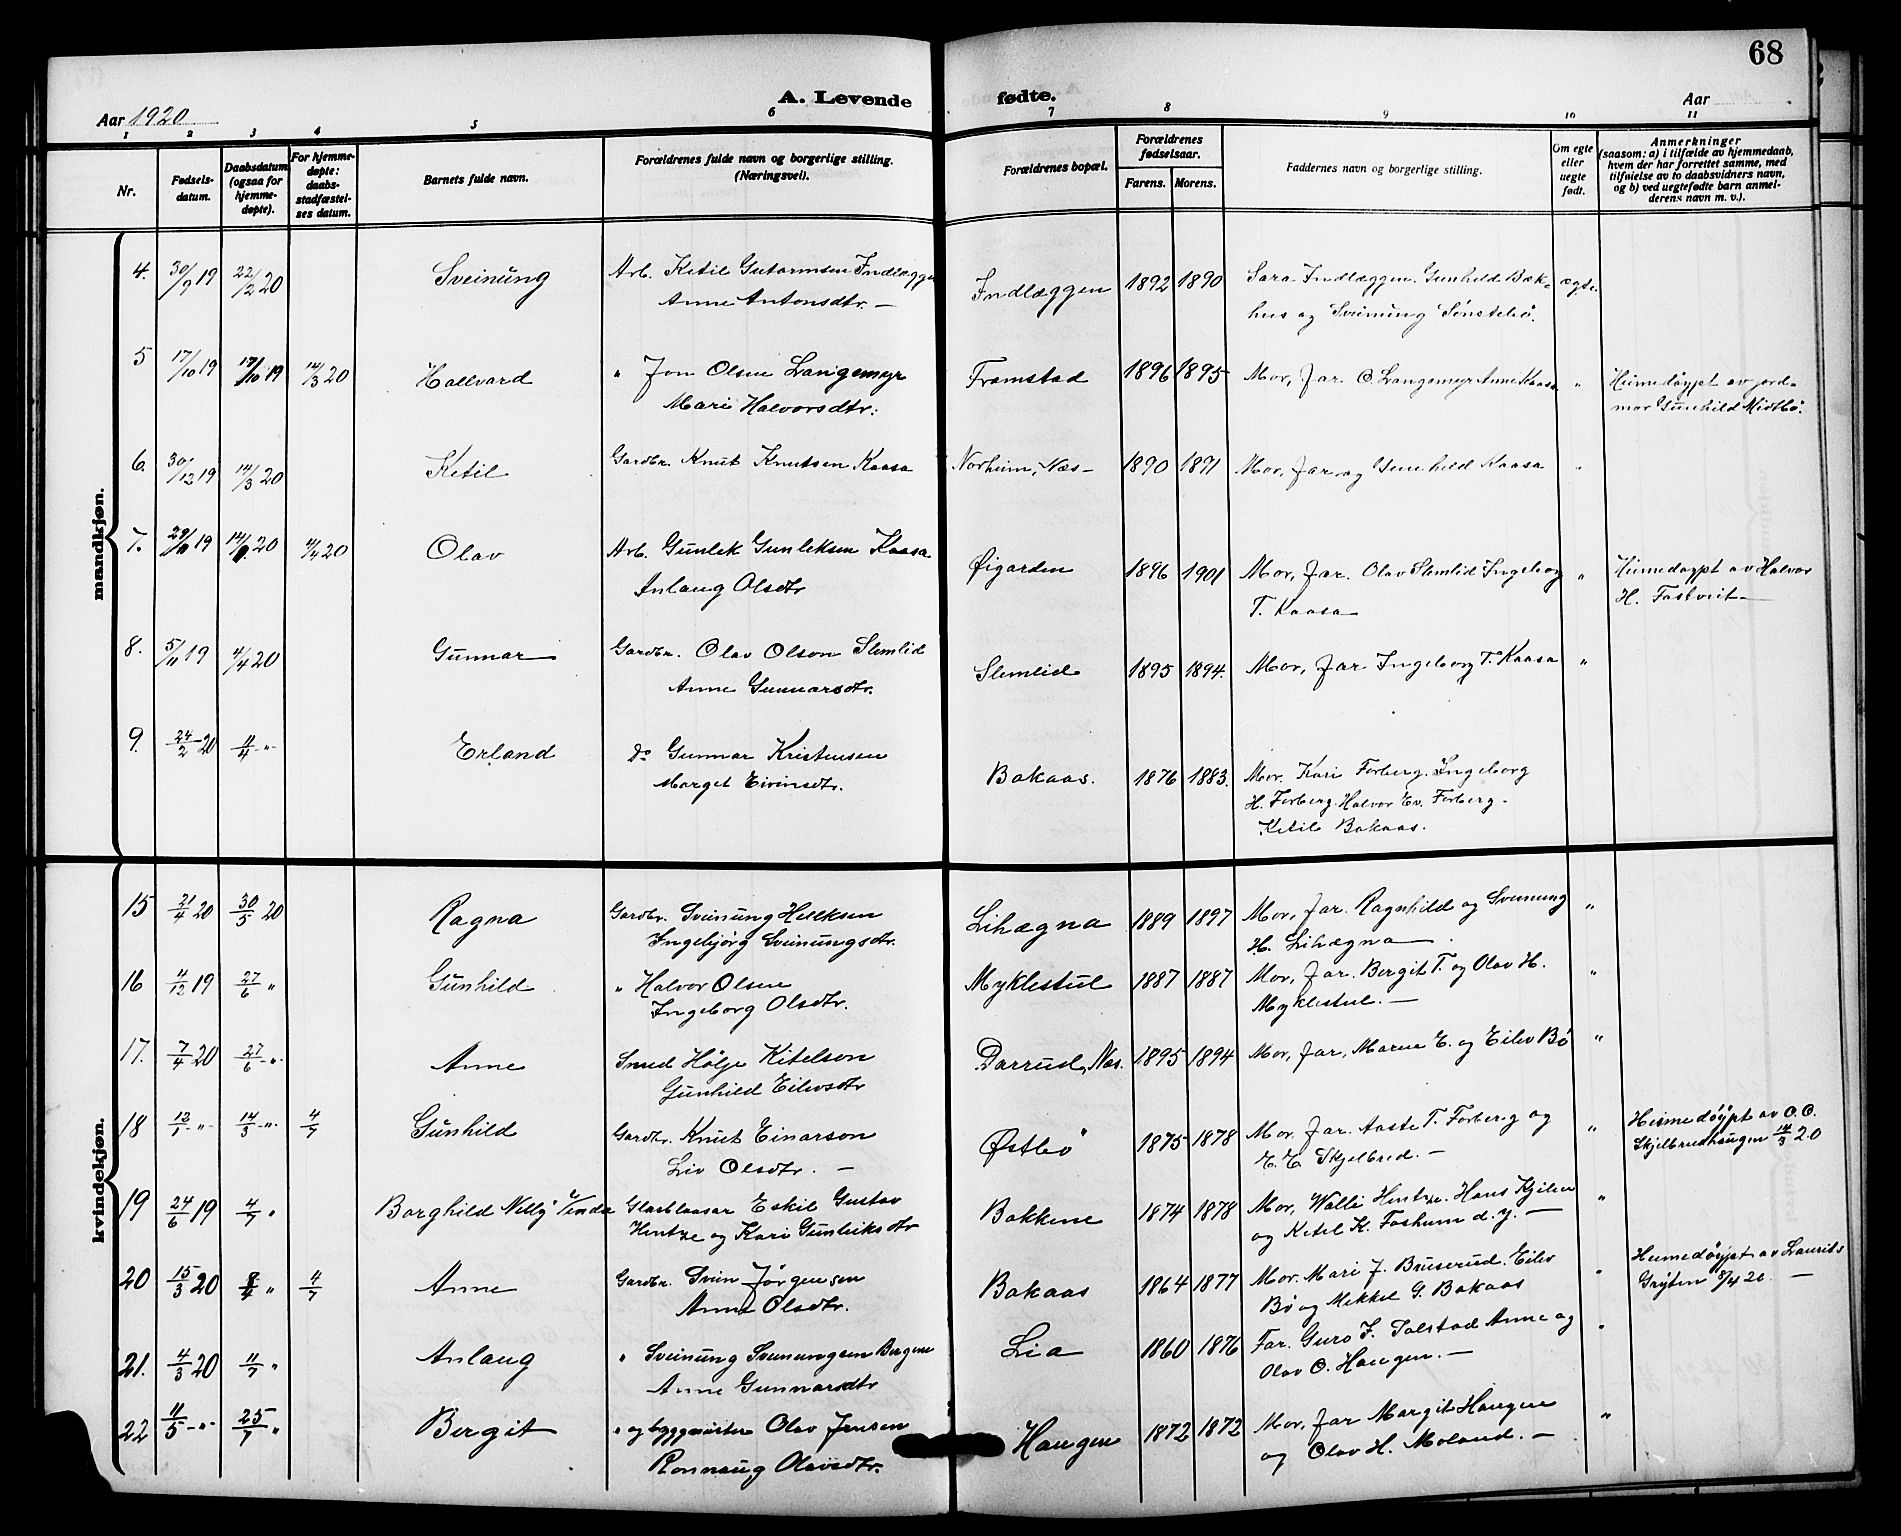 68
A. Levende fødte.
Aar 1920
Aar
1 2 3 4 5 6 7 8 9 10 11
Nr.
Fødsels-
datum.
Daabsdatum
(ogsaa for
hjemme-
døpte).
For hjemme-
døpte:
daabs-
stadfæstel-
ses datum.
Barnets fulde navn.
Forældrenes fulde navn og borgerlige stilling.
(Næringsvei).
Forældrenes bopæl.
Forældrenes
fødselsaar.
Farens. Morens.
Faddernes navn og borgerlige stilling.
Om egte
eller
uegte
født.
Anmerkninger
(saasom: a) i tilfælde av hjemmedaab,
hvem der har forrettet samme, med
tilføielse av to daabsvidners navn,
og b) ved uegtefødte barn anmel-
derens navn m. v.).
mandkjøn.
4. 30/9 19 22/2 20 Sveinung Arb. Ketil Gutormsen Indlæggen Indlæggen 1892 1890 Sara Indlæggen. Gunhild Bæk- ægte.
Anne Antonsdtr. — hus og Sveinung Sønstebø.
5 17/10 19 17/10 19 14/3 20 Hallvard " Jon Olsen Langemyr Framstad 1896 1895 Mor, far. O. Langemyr Anne Kaasa " Heimedøypt av jord-
Mari Halvorsdtr. mor Gunhild Midtbø.
6. 30/12 19 14/3 20 Ketil Gardbr. Knut Knutsen Kaasa Norheim, Næs— 1890 1891 Mor, far og Gunhild Kaasa "
7. 19 20 4/4 20 Olav Arb. Gunlek Gunleksen Kaasa Øigarden 1896 1901 Mor, far. Olav Slemlid Ingeborg " Heimedøypt av Halvor
Anlaug Olsdtr T. Kaasa H. Fostveit—
8. 5/11 19 4/4 20 Gunnar Gardbr. Olav Olson Slemlid Slemlid 1895 1894. Mor, far Ingeborg T. Kaasa "
Anne Gunnarsdtr.
9. 24/2 20 11/4 -"- Erland do Gunnar Kristensen Bakaas. 1876 1883. Mor. Kari Forberg. Ingeborg
Marget Eivinsdtr. H. Forberg. Halvor Ev. Forberg.
Ketil Bakaas.
kvindekjøn.
15 21/4 20 30/5 20 Ragna Gardbr. Sveinung Helleksen Lihægna 1889 1897 Mor, far. Ragnhild og Sveinung "
Ingebjørg Sveinungsdtr. H. Lihægna
16 4/12 19 27/6 " Gunhild " Halvor Olsen Myklestul 1887 1887 Mor, far. Bergit T. og Olav H. "
Ingeborg Olsdtr. Myklestul. —
17. 7/4 20 27/6 -"- Anne Smed Hølje Kitelson Darrud, Næs. 1895 1894 Mor, far, Maren E. og Eilev Bø "
Gunhild Eilevsdtr
18 12/1 -"- 14/3 -"- 4/7 Gunhild Gardbr. Knut Einarson Østbø 1875 1878 Mor, far. Aaste T. Forberg og " Heimedøypt av O. O.
Liv Olsdtr. — E. E. Skjelbred. — Skjelbredhaugen 14/3 20
19 24/6 19 4/7 " Borghild Nelly Glasblaasar Eskil Gustav Bakkene 1874 1878 Mor, Walli Hentze. Hans Kjilen "
Hentze og Kari Gunleiksdtr og Ketil K. Foshum d. y. —
20 15/3 20 " 4/7 Anne Gardbr. Svein Jørgensen Bakaas 1864 1877 Mor. Mari J. Bruserud. Eilev " Heimedøypt av Laurits
Anne Olsdtr. Bø og Mikkel G. Bakaas Gryten 8/4 20. —
21. 4/3 20 11/7 " Anlaug " Sveinung Sveinungsen Bergene Lia 1860 1876 Far. Guro J. Tolstad Anne og "
Anne Gunnarsdtr Olav O. Haugen. —
22 11/5 -"- 25/7 " Bergit " og byggmeister Olav Jensen Haugen 1872 1872 Mor, far Margit Haugen "
Ronnaug Olavsdtr. og Olav H. Moland. —